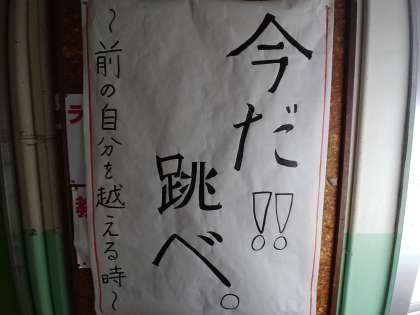 今だ!!
跳べ。
～前の自分を越える時～
ラ